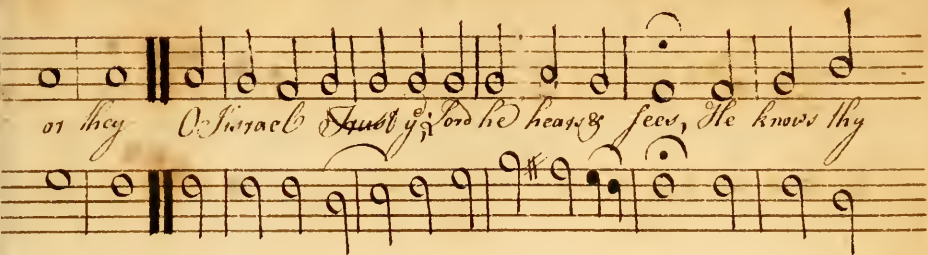 or they O Israel Trust yᵉ Lord he hears & sees, He knows thy